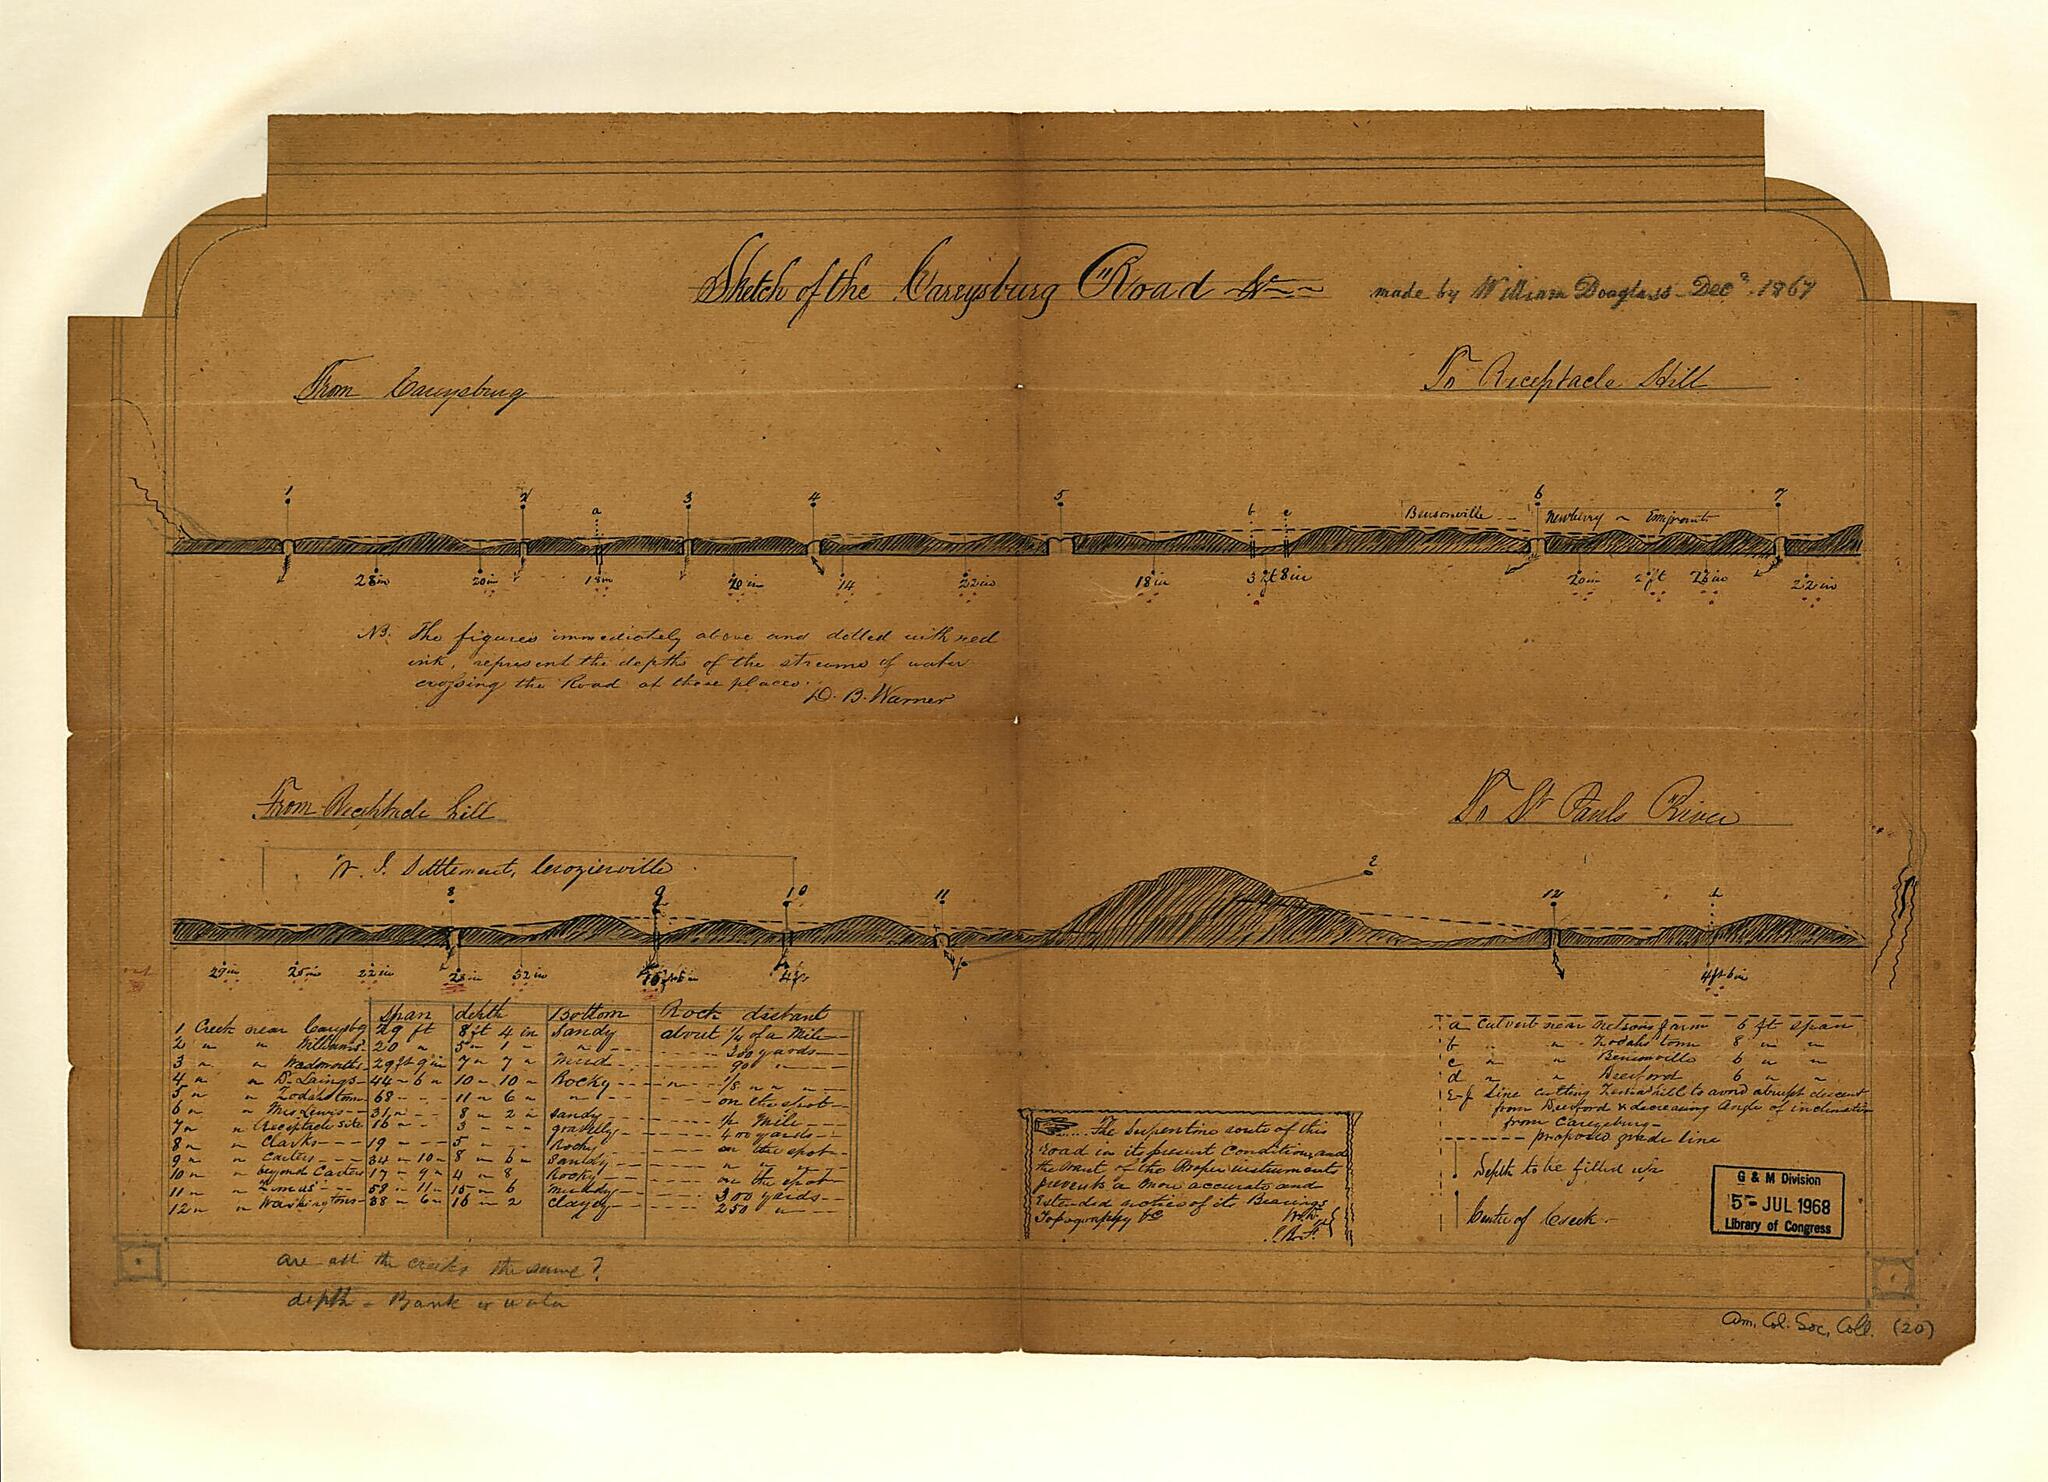 Sketch of the Careysburg Road &c
made by William Douglass Decr. 1867
From Careysburg
To Receptacle Hill
1 2 a 3 4 5 b c 6 7
Bensonville Newberry Emigrants
28 in 20 in 18 in 20 in 14 22 in 18 in 3 ft 8 in 20 in 2 ft 23 in 22 in
NB. The figures immediately above and dotted with red
ink, represent the depths of the streams of water
crossing the Road at those places.
D. B. Warner
From Receptacle hill
To St Pauls River
W. I. Settlement, Crozierville
8 9 10 11 12
29 in 25 in 22 in 23 in 52 in 4 ft 4 ft 6 in
span depth Bottom Rock distant
1 Creek near Careysbg 29 ft 8 ft 4 in Sandy about 1/4 of a Mile
2 " " Williams' 20 " 5 " 1 " " 300 yards
3 " " Wadsworths 29 ft 9 in 7 " 7 " Mud 90 "
4 " " D. Laings 44 " 6 " 10 " 10 " Rocky " 1/8 " " "
5 " " Zodahs town 68 11 " 6 " " on the spot
6 " " Mrs Lewis 31 " 8 " 2 " Sandy 1/2 Mile
7 " " Receptacle site 16 " 3 " gravelly 400 yards
8 " " Clarks 19 5 " Rocky on the spot
9 " " Carters 34 " 10 8 " 6 " Sandy " " "
10 " " beyond Carters 17 " 9 " 4 " 8 Rocky on the spot
11 " " 59 " 11 " 15 " 6 Muddy 300 yards
12 " " Washingtons 38 " 6 " 16 " 2 Clayey 250 "
a Culvert near Nelsons farm 6 ft span
b " " Zodahs town 8 " "
c " " Bensonville 6 " "
d " " Deeford 6 " "
E-f Line cutting hill to avoid abrupt descent
from Deeford & decreasing angle of inclination
from Careysburg
proposed grade line
Depth to be filled up
Centre of Creek
The Serpentine route of this
road in its present Condition, and
the want of the Proper instruments
prevents a more accurate and
Extended notice of its Bearings
Topography &c
G & M Division
5 JUL 1968
Library of Congress
are all the creeks the same?
depth - Bank or water
Am. Col. Soc. Coll. (20)